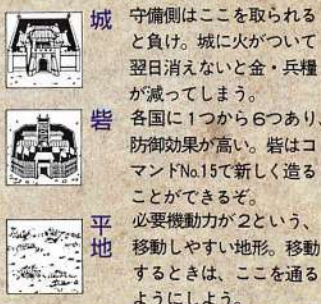 城
守備側はここを取られる
と負け。城に火がついて
翌日消えないと金・兵糧
が減ってしまう。
砦
各国に1つから6つあり、
防御効果が高い。砦はコ
マンドNo.15で新しく造る
ことができるぞ。
平地
必要機動力が2という、
移動しやすい地形。移動
するときは、ここを通る
ようにしよう。